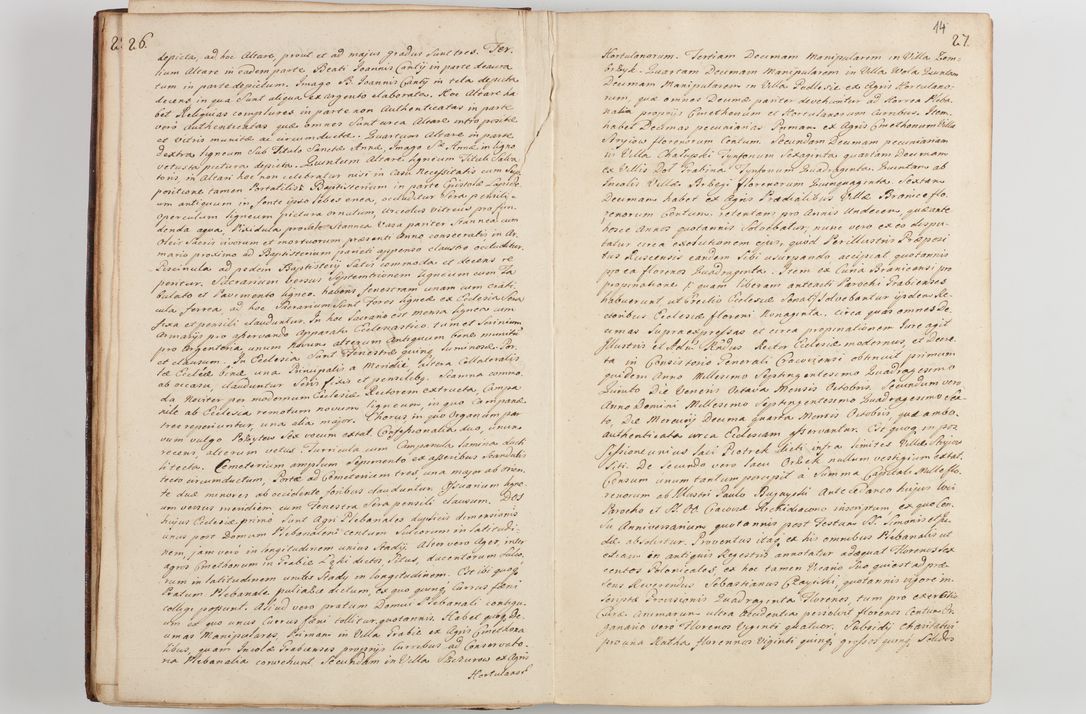 26
depicta, ad hoc Altare, prout et ad majus gradus Sunt tres. Ter-
tium Altare in eadem parte Beati Joannis Cantij in parte deaura
tum in parte depictum. Imago B. Joannis Cantij in tela depicta
decens in qua Sunt aliqua ex argento elaborata. Hoc Altare ha
bet Reliquias complures in parte non Authenticatas in parte
vero Authenticatas quæ omnes Sunt circa Altare intro positæ
et vitris munitæ ac circumductæ. Quartum Altare in parte
dextra ligneum Sub Titulo Sanctæ Annæ, Imago Sæ Annæ in ligno
vetusta pictura depicta. Quintum Altare ligneum Tituli Salva
toris in Altari hoc non celebratur nisi in casu Necessitatis cum Sup
positione tamen Portatilis. Baptisterium in parte Epistolæ Lapide
um antiquum in fonte ipso Lebes enea, occluditur Sera pensili,
operculum ligneum pictura ornatum, Urceolus vitreus pro fun
denda aqua, Vasa pariter Stannea cum
Oleis Sacris vivorum et mortuorum præsenti Anno consecratis in Ar
mario proximo ad Baptisterium parieti appenso claustro occluditur.
Piscinula ad pedem Baptisterij Satis commoda et decens re
peritur. Sacrarium versus Septemtrionem ligneum cum Ta
bulato et Pavimento ligneo habens fenestram unam cum crati
cula ferrea ad hoc Sacrarium Sunt Fores ligneæ ex Ecclesia Sera
fixa et pensili clauduntur. In hoc Sacrario est mensa lignea cum
Armarijs pro asservando Apparatu Ecclesiastico tum et Scrinium
pro Argenteria unum novum alterum Antiquum bene munitum
et clausum. In Ecclesia Sunt Fenestræ quinq luminosæ. Por
tæ Ecclæ binæ una Principalis a Meridie, altera Collateralis
ab occasu clauduntur Seris fixis et pensilibq. Kruchta commo
da Noviter per modernum Ecclesiæ Rectorem extructa, Campa
nile ab Ecclesia remotum novum ligneum in quo Campanæ
tres reperiuntur, una alia major. Chorus in quo Organum par
vum vulgo Pozytew Sex vocum extat. Confessionalia duo, unum
recens, alterum vetus. Turricula cum Campanula, Lamina ducti
li tecta. Cœmeterium amplum Sepimento ex asseribus Scandulis
tecto circumductum, Portæ ad Cœmeterium tres, una major ab orien
te duæ minores ab occidente foribus clauduntur. Ossuarium ligne
um versus meridiem cum Fenestra Sera pensili clausum. Dos
hujus Ecclesiæ primo Sunt Agri Plebanales duplicis dimensionis
unus post Domum Plebanalem centum Sulcorum in latitudi-
nem, jam vero in longitudinem unius Stadij. Alter vero Ager, inter
agros Cmethonum in Grabie Łęki dictus, Situs, ducentorum Sulco
rum in latitudinem unius Stadij in longitudinem. Est ibi quoq
Pratum Plebanale dictum, ex quo quinq Currus fæni
colligi possunt. Aliud vero pratum Domui Plebanali contigu
um ex quo unus Currus fæni collitur quotannis. Habet quoq De
cimas Manipulares, Primam in Villa Grabie ex Agris Cmethona
libus, quam Incolæ Grabienses proprijs curribus ad Conservato
ria Plebanalia convehunt. Secundam in Villa Brzezowa ex Agris
Hortulanorum
14
27.
Hortulanorum. Tertiam Decimam Manipularem in Villa Zam-
brzyk. Quartam Decimam Manipularem in Villa Wola Quintam
Decimam Manipularem in Villa Podlesie ex Agris Hortulano-
rum, quæ omnes Decimæ pariter devehuntur ad Horrea Pleba
nalia proprijs Cmethonum et Hortulanorum Curribus. Item
habet Decimas pecuniarias Primam ex Agris Cmethonum Villæ
Stryiow florenorum Centum. Secundam Decimam pecuniariam
in Villa Chalupki Tynfonum Sexaginta quartam Decimam
ex Villis Dol Grabina Tynfonum Quadraginta. Quintam ab
Incolis Villæ Brzegi florenorum Quinquaginta. Sextam
Decimam habet ex Agris Prædialibus Villæ Branice flo-
renorum Centum, retentam pro Annis Undecim, quæ ante
hosce Annos quotannis Solvebatur, nunc vero ex eo dispu-
tatur circa exolutionem ejus, quod Perillustris Præposi
tus Ruscensis eandem Sibi usurpando accipiat quotannis
pro ea florenos Quadraginta. Item ex Curia Branicensi pro
propinatione quam liberam anteacti Parochi Grabienses
habuerunt Solvebantur ipsdem Re
ctoribus Ecclesiæ floreni Nonaginta, circa quas omnes De
cimas Supra expressas et circa propinationem Jure agit
Illustris et Admodum Rndus Rector Ecclesiæ modernus, et Decre
ta in Consistorio Generali Cracoviensi obtinuit primum
quidem Anno Millesimo Septingentesimo Quadragesimo
Quinto Die Veneris Octava Mensis Octobris. Secundum vero
Anno Domini Millesimo Septingentesimo Quadragesimo Sex
to, Die Mercurij Decima quarta Mensis Octobris, quæ ambo
authenticata circa Ecclesiam asservantur. Est quoq in pos
sessione unius laci Piotrek dicti infra limites Villæ Stryiow
Siti. De Secundo vero lacu Orlik nullum vestigium extat.
Censum unum tantum percipit à Summa Capitali Mille flo-
renorum ab Illustri Paulo Antecedaneo hujus loci
Parocho et Archidiacono inscriptum, ex quo Cen
su Anniversarium quotannis post Festum SS. Simonis et Ju
dæ absolvitur. Proventus itaq ex his omnibus Plebanalis ut
etiam in antiquis Regestris annotatur adæquat Florenos Sex
centos Polonicales, ex hoc tamen Vicario Suo qui est ad præ
sens Reverendus Sebastianus quotannis vigore in
scriptæ Provisionis Quadraginta Florenos, tum pro exercitio
Curæ Animarum ultra Accidentia persolvit florenos Centum Or
ganario vero Florenos Viginti quatuor. Subsidij Charitativi
pro una Ratha florennos Viginti quinq, grossos quinq, Solidos